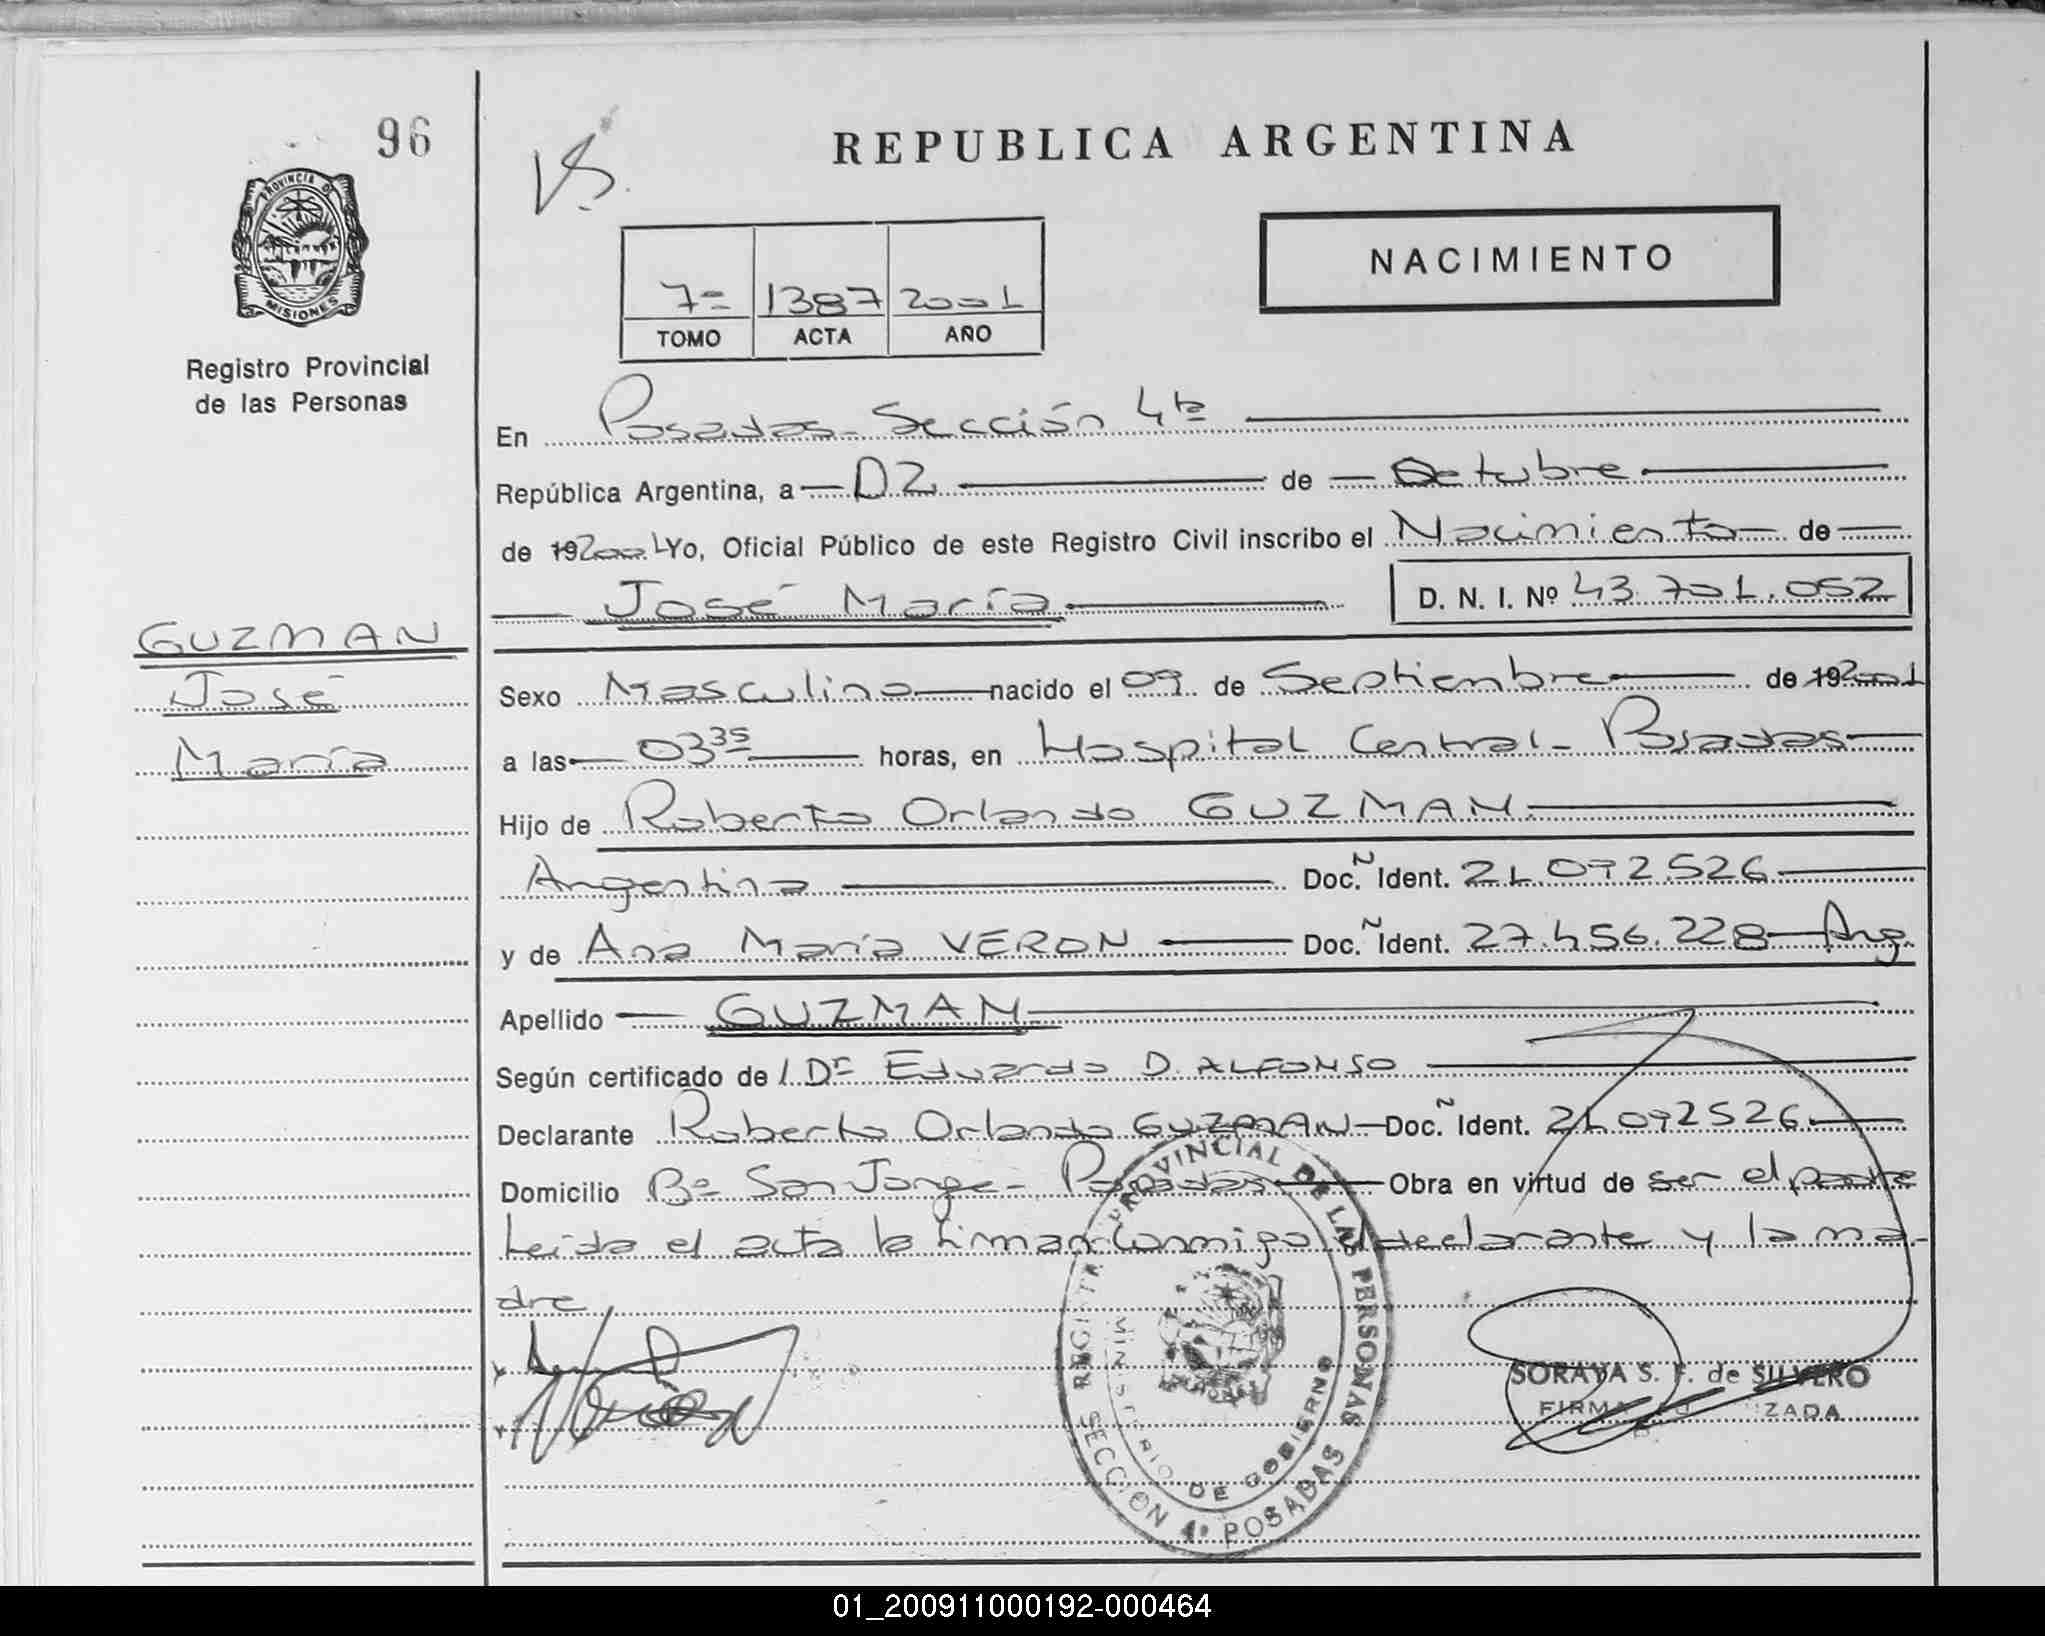 96
PROVINCIA DE
MISIONES
Registro Provincial
de las Personas
GUZMAN
José
María
REPUBLICA ARGENTINA
NACIMIENTO
7º 1387 2001
TOMO ACTA AÑO
En Posadas-Sección 4ta
República Argentina, a 02 de Octubre
de 192001 Yo, Oficial Público de este Registro Civil inscribo el Nacimiento de
José María D. N. I. Nº 43.701.052
Sexo Masculino nacido el 09 de Septiembre de 192001
a las 03 35 horas, en Hospital Central- Posadas
Hijo de Roberto Orlando GUZMAN
Argentina Doc. Ident. 21.092.526
y de Ana María VERON Doc. Ident. 27.456.228 Arg.
Apellido GUZMAN
Según certificado de l Dr Eduardo D. ALFONSO
Declarante Roberto Orlando GUZMAN Doc. Ident. 21.092526
Domicilio Bº San Jorge- Posadas Obra en virtud de ser el padre
Leida el acta la firman conmigo el declarante y la ma-
dre
REGISTRO PROVINCIAL DE LAS PERSONAS
MINISTERIO DE GOBIERNO
SECCION 4º POSADAS
SORAYA S. F. de SILVERO
01_200911000192-000464